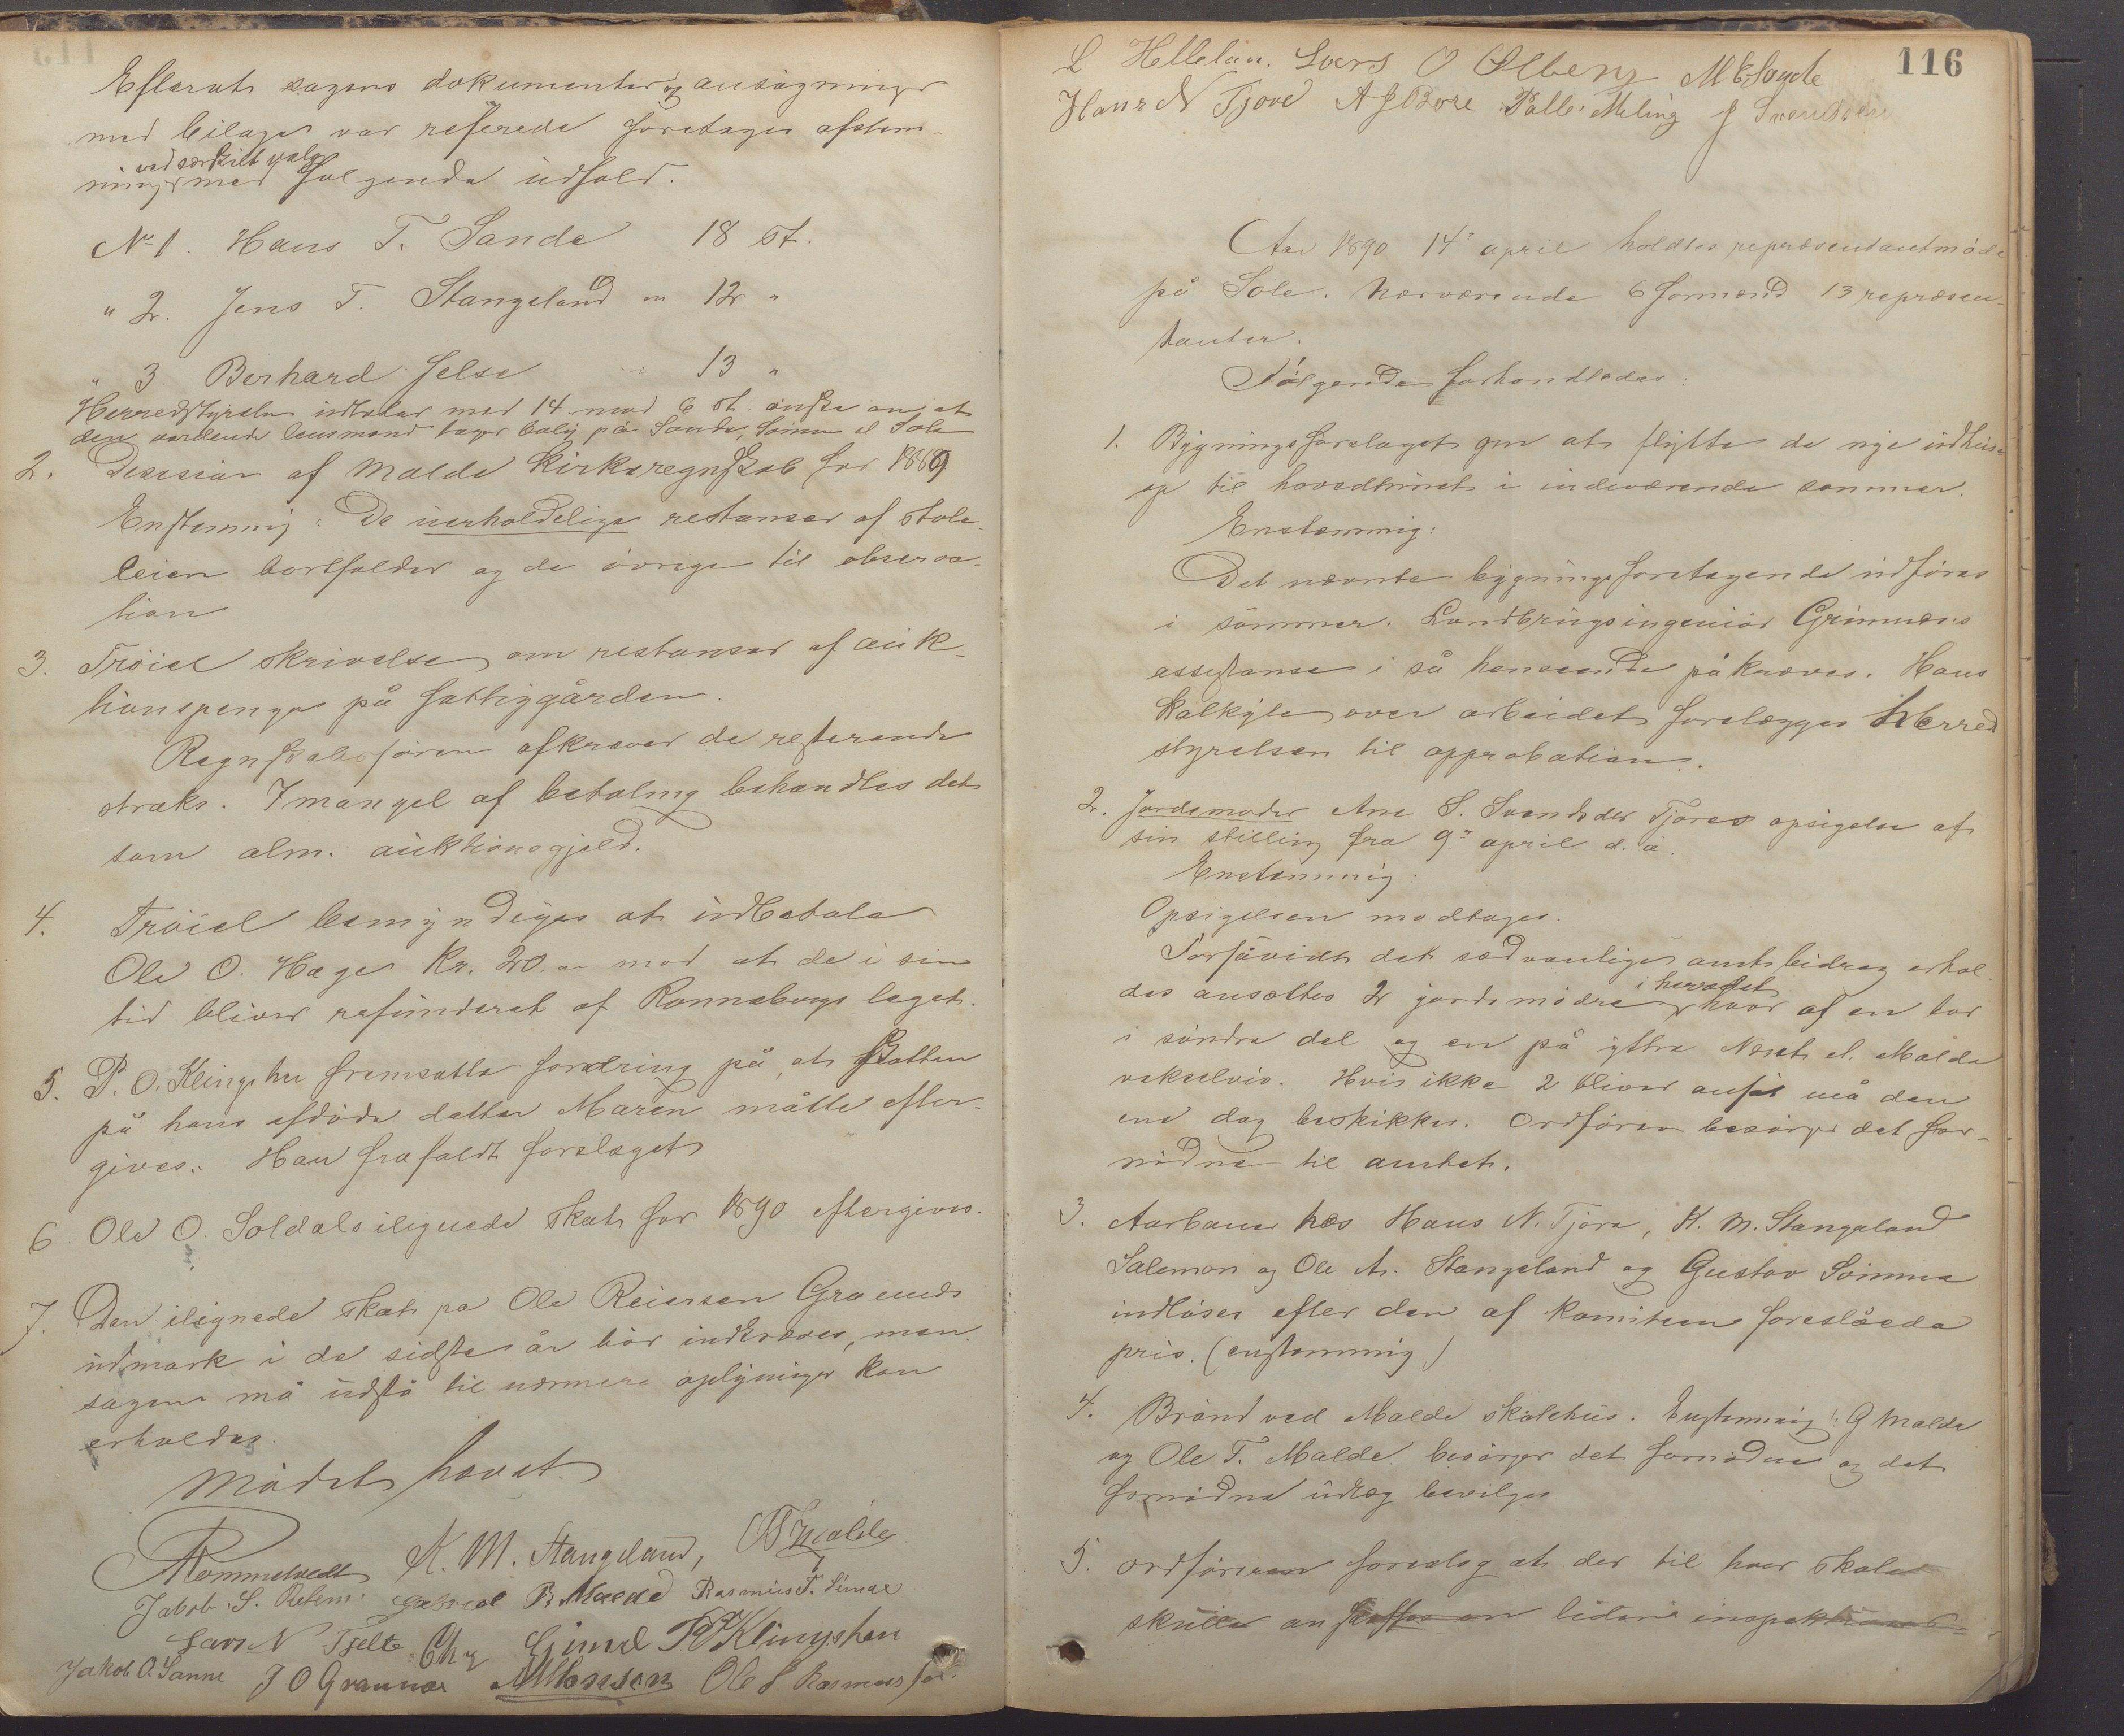 Efterat sagens dokumenter og ansøgninger
med bilager var referede foretages afstem-
ved særskilt valg
ninger med følgende udfald.
No 1. Hans T. Sande 18 st.
" 2. Jens T. Stangeland " 12 "
" 3 Berhard Jelse 13 "
Herredstyrelsen udtaler med 14 mod 6 st. ønske om, at
den vordende lensmand tager bolig på Sande, Sømme el Sole
2. Desision af Malde Kirkeregnskab for 1889
Enstemmig: De uerholdelige restanser af stole-
leien bortfalder og de øvrige til observa-
tion
3. Trøiel skrivelse om restanser af auk-
tionspenge på fattiggården.
Regnskabsføren afkræver de resterende
straks. I mangel af betaling behandles det
som alm. auktionsgjeld.
4. Trøiel bemyndiges at udbetale
Ole O. Hage Kr. 20.00 mod at de i sin
tid bliver refunderet af Rennebergs laget.
5. P. O. Klingshei fremsatte fordring på, at skatten
på hans afdøde datter Maren måtte efter-
gives. Han frafaldt forslaget
6. Ole O. Soldals ilignede skat for 1890 eftergives.
7. Den ilignede skat pa Ole Reiersen Grannes
udmark i de sidste år bør indkræves, men
sagen må udstå til nærmere oplysninger kan
erholdes.
Mødet hævet
Rommetvedt K. M. Stangeland, Malde
Jakob. S. Gabriel B. Malde Rasmus T.
Lars N Tjelte Chr Gimel P O Klingshei
Jakob O. Sanne J O Grannes Ole J Rasmussen
116
L Hellelan. Lars O Ølberg M E Sande
Hans N Tjore A J Bore Palle Meling J Svendsen
Aar 1890 14de april holdtes repræsentantmøde
på Sole. Nærværende 6 formænd 13 repræsen-
tanter.
Følgende forhandledes:
1. Bygningsforslaget om at flytte de nye udhuse
op til hovedtunet i indeværende sommer.
Enstemmig:
Det nævnte bygningsforetagende udføres
i sommer. Landbrugsingeniør Grimnæs's
assistanse i så henseende påkræves. Hans
Kalkyle over arbeidet forelægges Herred
styrelsen til approbation.
2. Jordemoder Ane S. Svendsdtr Tjores opsigelse af
sin stilling fra 9de april d. å.
Enstemmig:
Opsigelsen modtages.
Forsåvidt det sædvanlige amtsbidrag erhol-
i herredet
des ansættes 2 jordemødre hvor af en bor
i søndre del og en på yttre Næset el. Malde
vekselvis. Hvis ikke 2 bliver ansat må den
ene dog beskikkes. Ordføren besørger det for-
nødne til amtet.
3. Aarbøner hos Hans N. Tjora, K. M. Stangeland
Salemon og Ole A. Stangeland og Gustav Sømme
indløses efter den af komiteen foreslåede
pris. (enstemmig)
4. Brønd ved Malde skolehus. Enstemmig: G Malde
og Ole T. Malde besørger det fornødne og det
fornødne udlæg bevilges
5. ordføreren foreslog at der til hver skole
skulle anskaffes en liden inspektions-